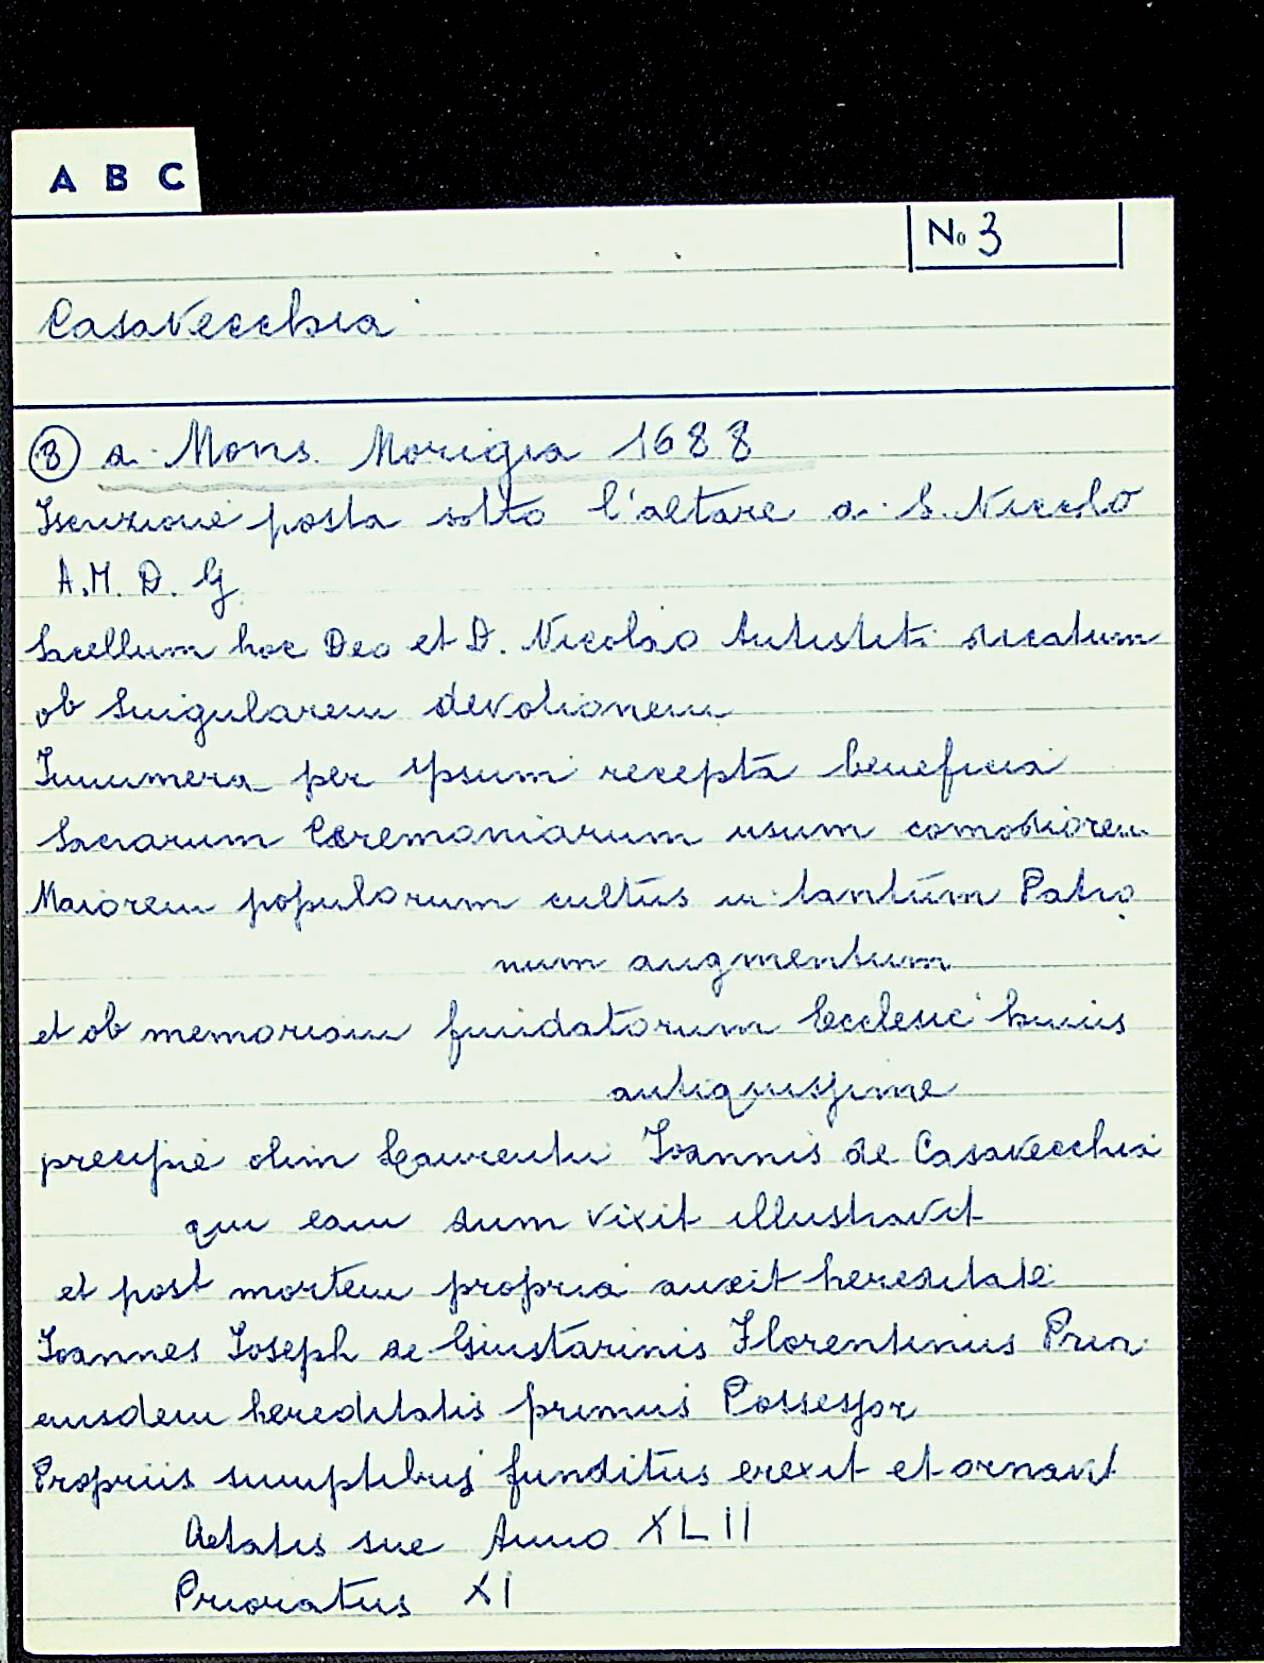 A B C
No 3
Casavecchia
8 a. Mons. Morigia 1688
Iscrizione posta sotto l'altare a S. Niccolò
A.M.D.G.
Sacellum hoc Deo et D. Nicolao Antistiti dicatum
ob singularem devotionem
Innumera per ipsum recepta beneficia
Sacrarum Ceremoniarum usum comodiorem
Maiorem populorum cultus in tantum Patro
num augmentum
et ob memoriam fundatorum Ecclesie huius
antiquissime
precipie olim Laurentii Ioannis de Casavecchia
qui eam dum vixit illustravit
et post mortem propria auxit hereditate
Ioannes Ioseph de Giustarinis Florentinus Prior
eiusdem hereditatis primus Possessor
Propriis sumptibus funditus erexit et ornavit
Aetatis sue Anno XLII
Prioratus XI